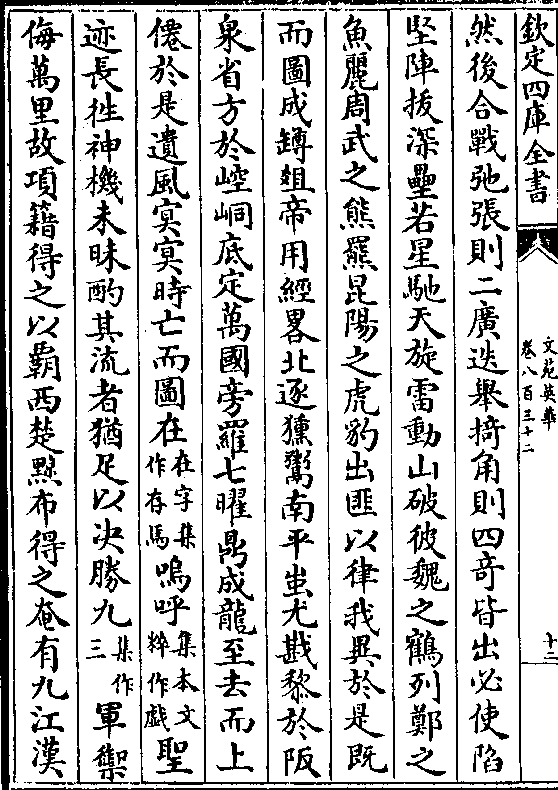 欽定四庫全書
文苑英華
卷八百三十二
十二
然後合戰弛張則二廣迭舉掎角則四奇皆出必使陷
堅陣拔深壘若星馳天旋雷動山破彼魏之鶴列鄭之
魚麗周武之熊羆昆陽之虎豹出匪以律我異於是既
而圖成罇爼帝用經畧北逐獯鬻南平蚩尤戡黎於阪
泉省方於崆峒底定萬國旁羅七曜鼎成龍至去而上
僊於是遺風㝠㝠時亡而圖在在字集作存焉嗚呼集本文粹作戲聖
迹長徃神機未昧酌其流者猶足以决勝九集作三軍禦
侮萬里故項籍得之以覇西楚黥布得之奄有九江漢